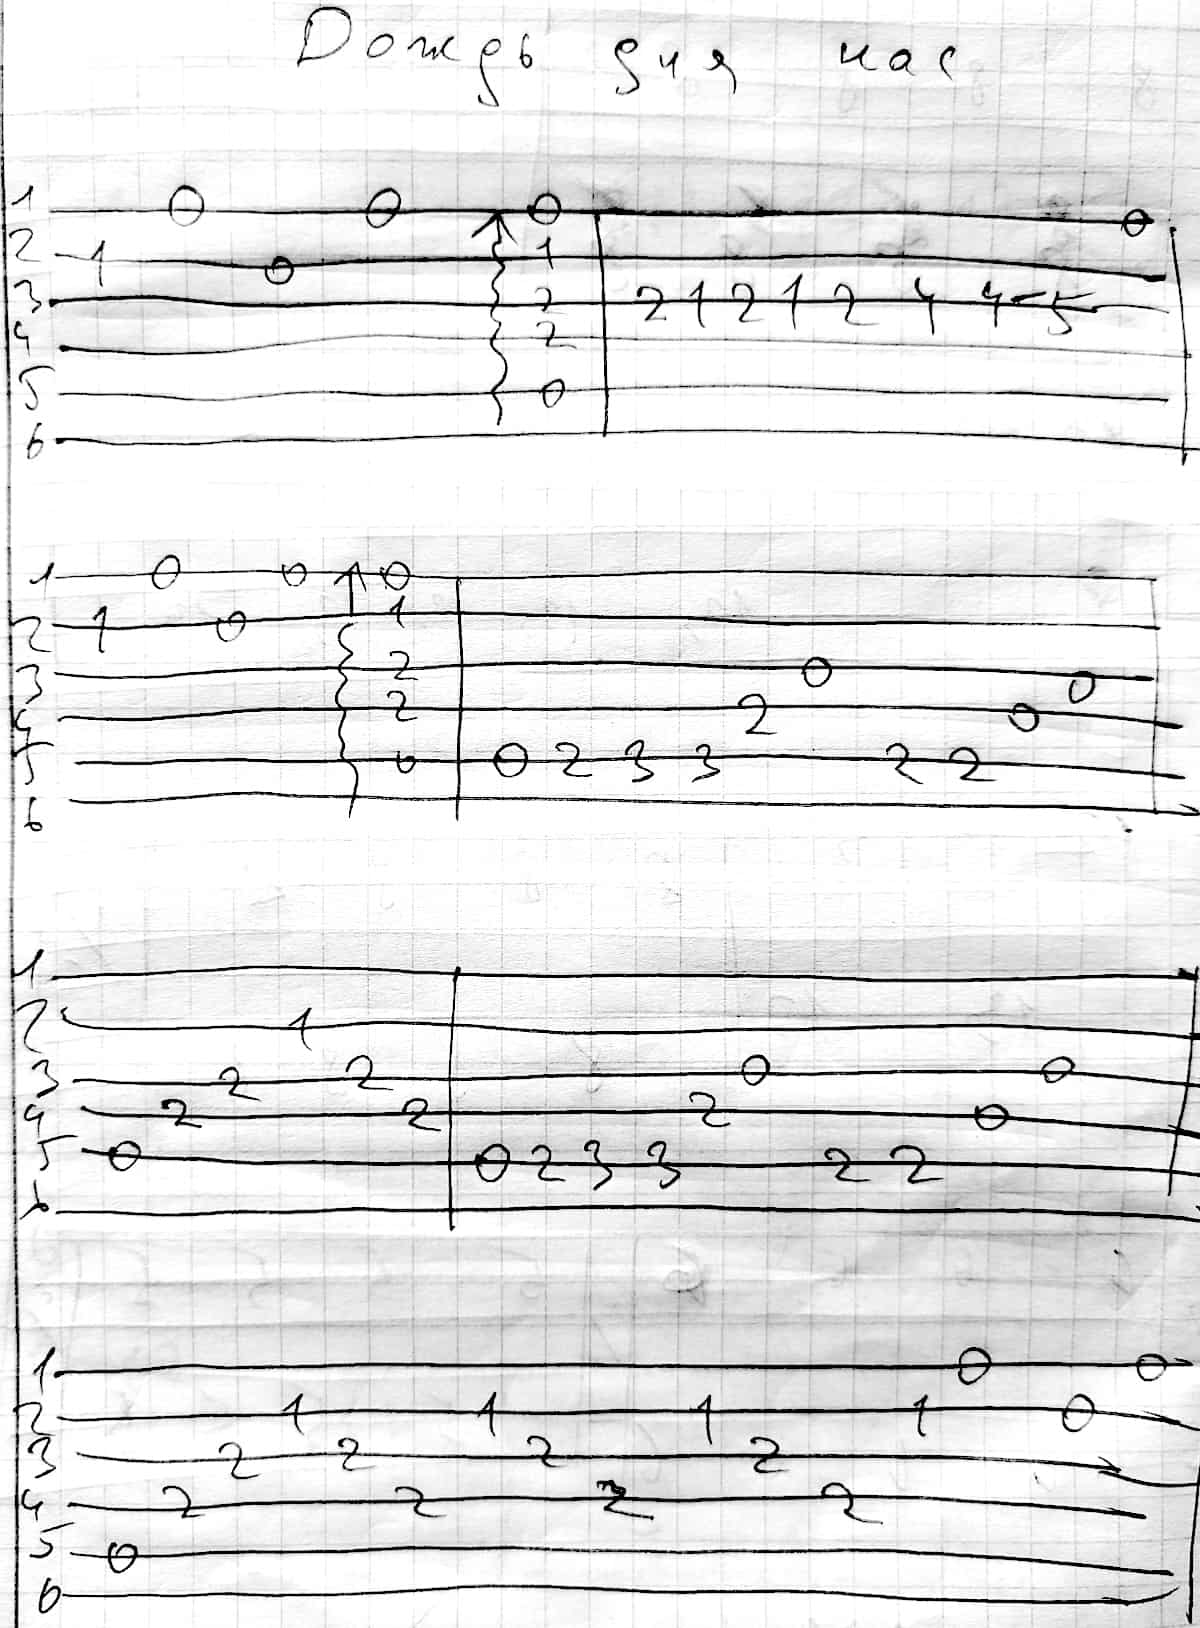 Дождь для нас
1 0 0 0
2 1 0 1
3 2 2 1 2 1 2 4 4 5
4 2
5 0
6
1 0 0 0
2 1 0 1
3 2 0 0
4 2 2 0
5 0 0 2 3 3 2 2
6
1
2 1
3 2 2 0 0
4 2 2 2 0
5 0 0 2 3 3 2 2
6
1 0 0
2 1 1 1 1 0
3 2 2 2 2
4 2 2 2 2
5 0
6